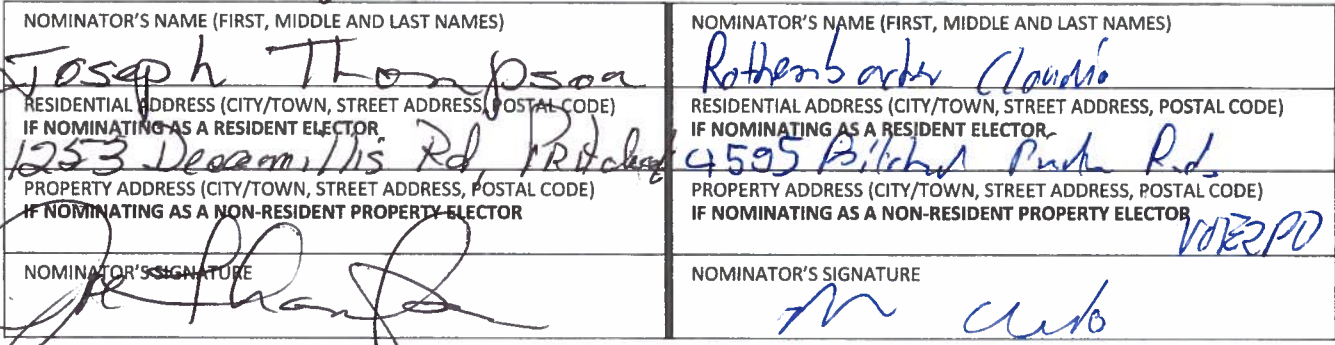 NOMINATOR'S NAME (FIRST, MIDDLE AND LAST NAMES)
Joseph Thompson
RESIDENTIAL ADDRESS (CITY/TOWN, STREET ADDRESS, POSTAL CODE)
IF NOMINATING AS A RESIDENT ELECTOR
1253 Rd,
PROPERTY ADDRESS (CITY/TOWN, STREET ADDRESS, POSTAL CODE)
IF NOMINATING AS A NON-RESIDENT PROPERTY ELECTOR
NOMINATOR'S SIGNATURE
Joe
NOMINATOR'S NAME (FIRST, MIDDLE AND LAST NAMES)
Claudio
RESIDENTIAL ADDRESS (CITY/TOWN, STREET ADDRESS, POSTAL CODE)
IF NOMINATING AS A RESIDENT ELECTOR
4595 Rd.
PROPERTY ADDRESS (CITY/TOWN, STREET ADDRESS, POSTAL CODE)
IF NOMINATING AS A NON-RESIDENT PROPERTY ELECTOR
V0E2P0
NOMINATOR'S SIGNATURE